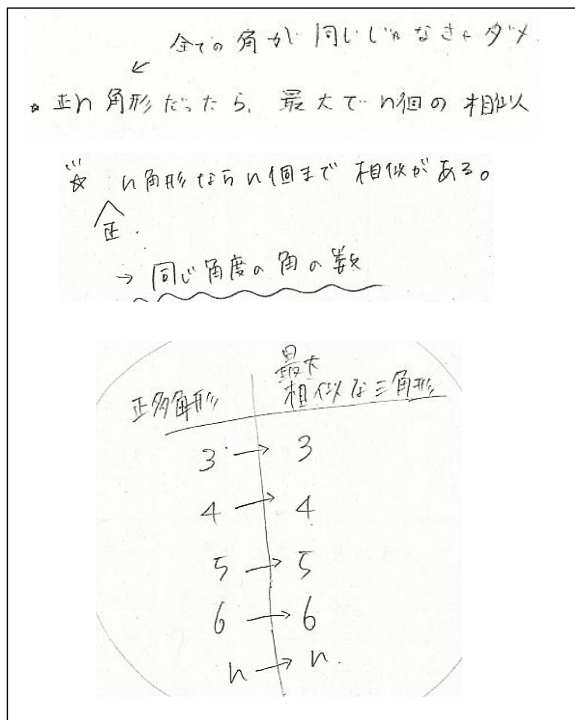 全ての角が同じじゃなきゃダメ
↙
* 正n角形だったら、最大でn個の相似
☆ n角形ならn個まで相似がある。
正
→ 同じ角度の角の数
正多角形 最大相似な三角形
3 → 3
4 → 4
5 → 5
6 → 6
n → n.